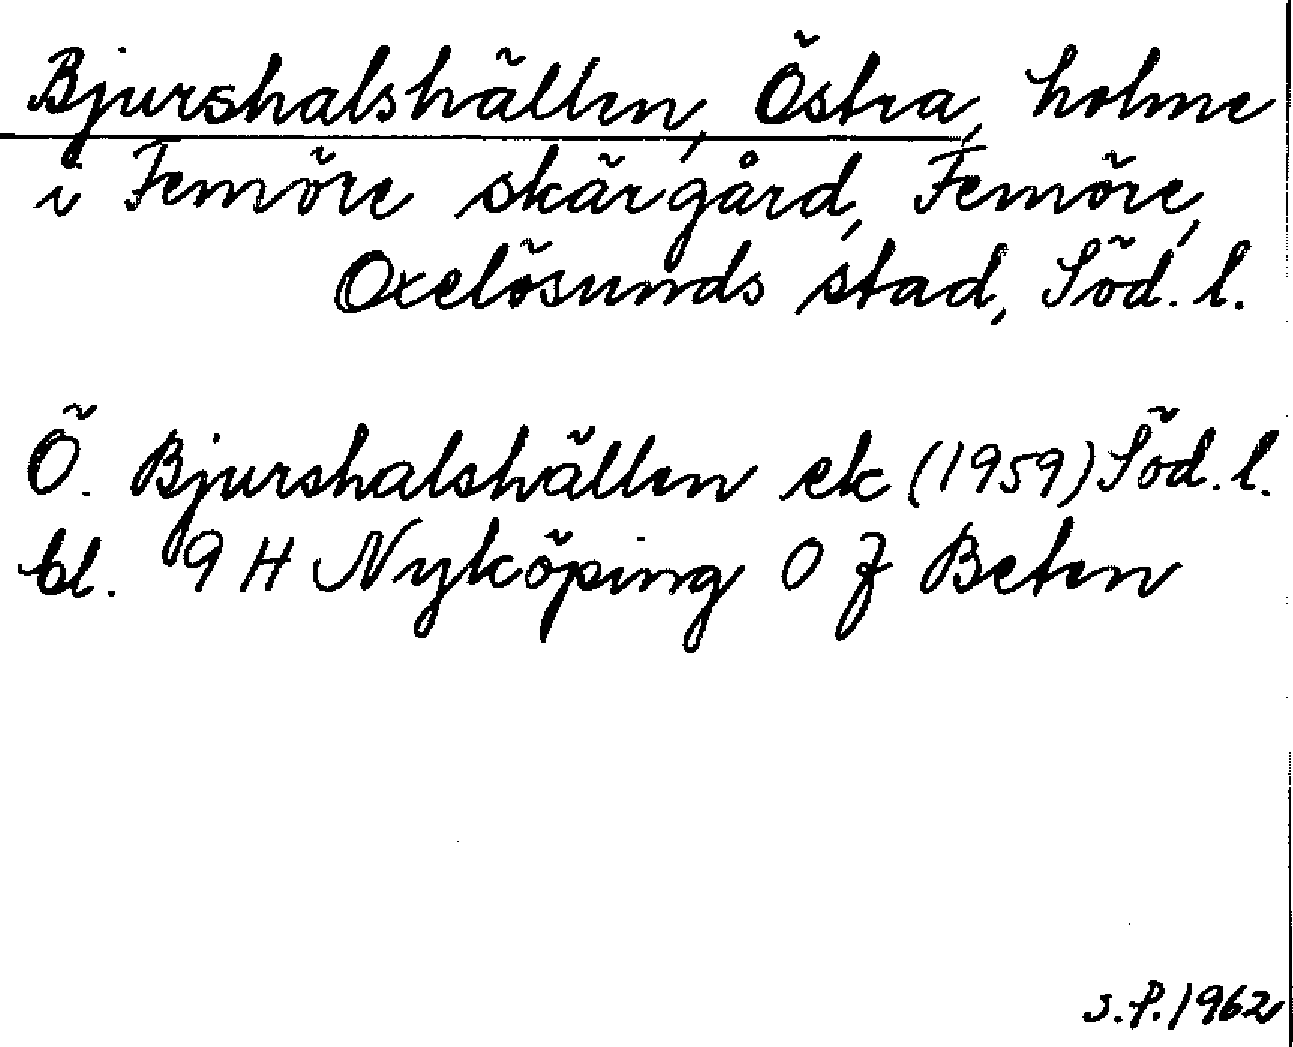 Bjurshalshällen, Östra, holme
i Femöre skärgård, Femöre,
Oxelösunds stad, Söd. l.
Ö. Bjurshalshällen ek (1959) Söd. l.
bl. 9 H Nyköping 0 f Beten
S.P. 1962